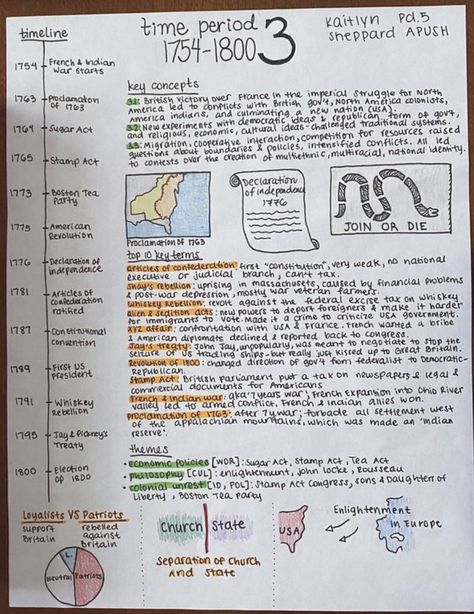 timeline
1754 French & Indian War starts
1763 Proclamation of 1763
1764 Sugar Act
1765 Stamp Act
1773 Boston Tea Party
1775 American Revolution
1776 Declaration of Independence
1781 Articles of Confederation ratified
1787 Constitutional Convention
1789 First US President
1791 Whiskey Rebellion
1795 Jay & Pickney's Treaty
1800 Election of 1800
time period 3
1754-1800
Kaitlyn Pd.5
Sheppard APUSH
key concepts
3.1: British victory over France in the imperial struggle for North
America led to conflicts with British gov't, North America colonists,
America indians, and culminating a new nation (USA).
3.2: New experiments with democratic ideas & republican form of gov't,
and religious, economic, cultural ideas - challenged traditional systems.
3.3: Migration, cooperative interaction, competition for resources raised
questions about boundaries & policies, intensified conflicts. All led
to contests over the creation of multiethnic, multiracial, national identity.
Proclamation of 1763
Declaration of independence 1776
JOIN OR DIE
top 10 key terms
articles of confederation: first "constitution", very weak, no national
executive or judicial branch, cant tax.
Shay's rebellion: uprising in massachusets, caused by financial problems
& post-war depression, mostly war veteran farmers.
Whiskey Rebellion: revolt against the federal excise tax on whiskey
Alien & sedition acts: new powers to deport foreigners & make it harder
for immigrants to vote. Made it a crime to criticize USA government.
XYZ affair: confrontation with USA & France. French wanted a bribe
& American diplomats declined & reported back to congress.
Jay's treaty: John Jay, unpopularly, was meant to negotiate to stop the
seizure of US trading ships - but really just kissed up to Great Britain.
Revolution of 1800: changed direction of gov't from federalist to Democratic-
Republican.
Stamp Act: British Parliament put a tax on newspapers & legal &
commercial documents for Americans
French & Indian war: aka '7 years war'; French expansion into Ohio River
valley led to armed conflict. French & indian allies won.
Proclamation of 1763: after 7yr war; forbade all settlement west
of the appalachian mountains, which was made an 'indian
reserve'.
themes
• economic policies [WOR]: Sugar Act, Stamp Act, Tea Act
• philosophy [CUL]: enlightenment, john locke, Rousseau
• colonial unrest [ID, POL]: Stamp Act Congress, sons & Daughter of
Liberty, Boston Tea Party
Loyalists VS Patriots
support Britain
rebelled against Britain
L
Neutral
Patriots
church state
separation of church
and state
USA
Enlightenment
in Europe